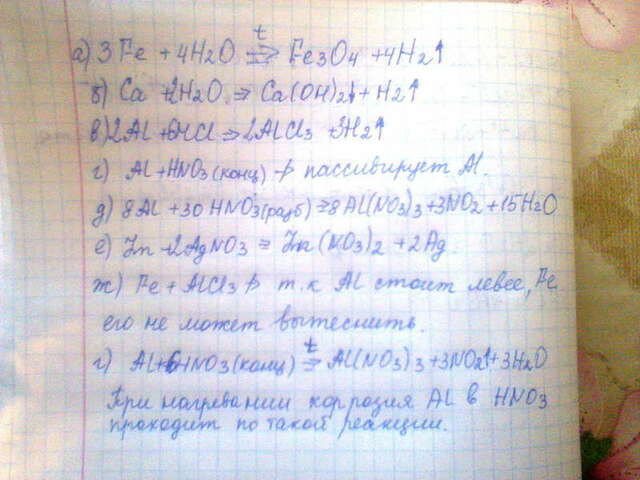 а) 3Fe + 4H2O t⇒ Fe3O4 + 4H2↑
б) Ca + 2H2O ⇒ Ca(OH)2↓ + H2↑
в) 2Al + 6HCl ⇒ 2AlCl3 + 3H2↑
г) Al + HNO3 (конц) ↛ пассивирует Al.
д) 8Al + 30HNO3(разб) ⇒ 8Al(NO3)3 + 3NO2 + 15H2O
е) Zn + 2AgNO3 = Zn(NO3)2 + 2Ag.
ж) Fe + AlCl3 ↛ т.к Al стоит левее, Fe
его не может вытеснить.
г) Al + 6HNO3 (конц) t⇒ Al(NO3)3 + 3NO2↑ + 3H2O
При нагревании коррозия Al в HNO3
проходит по такой реакции.